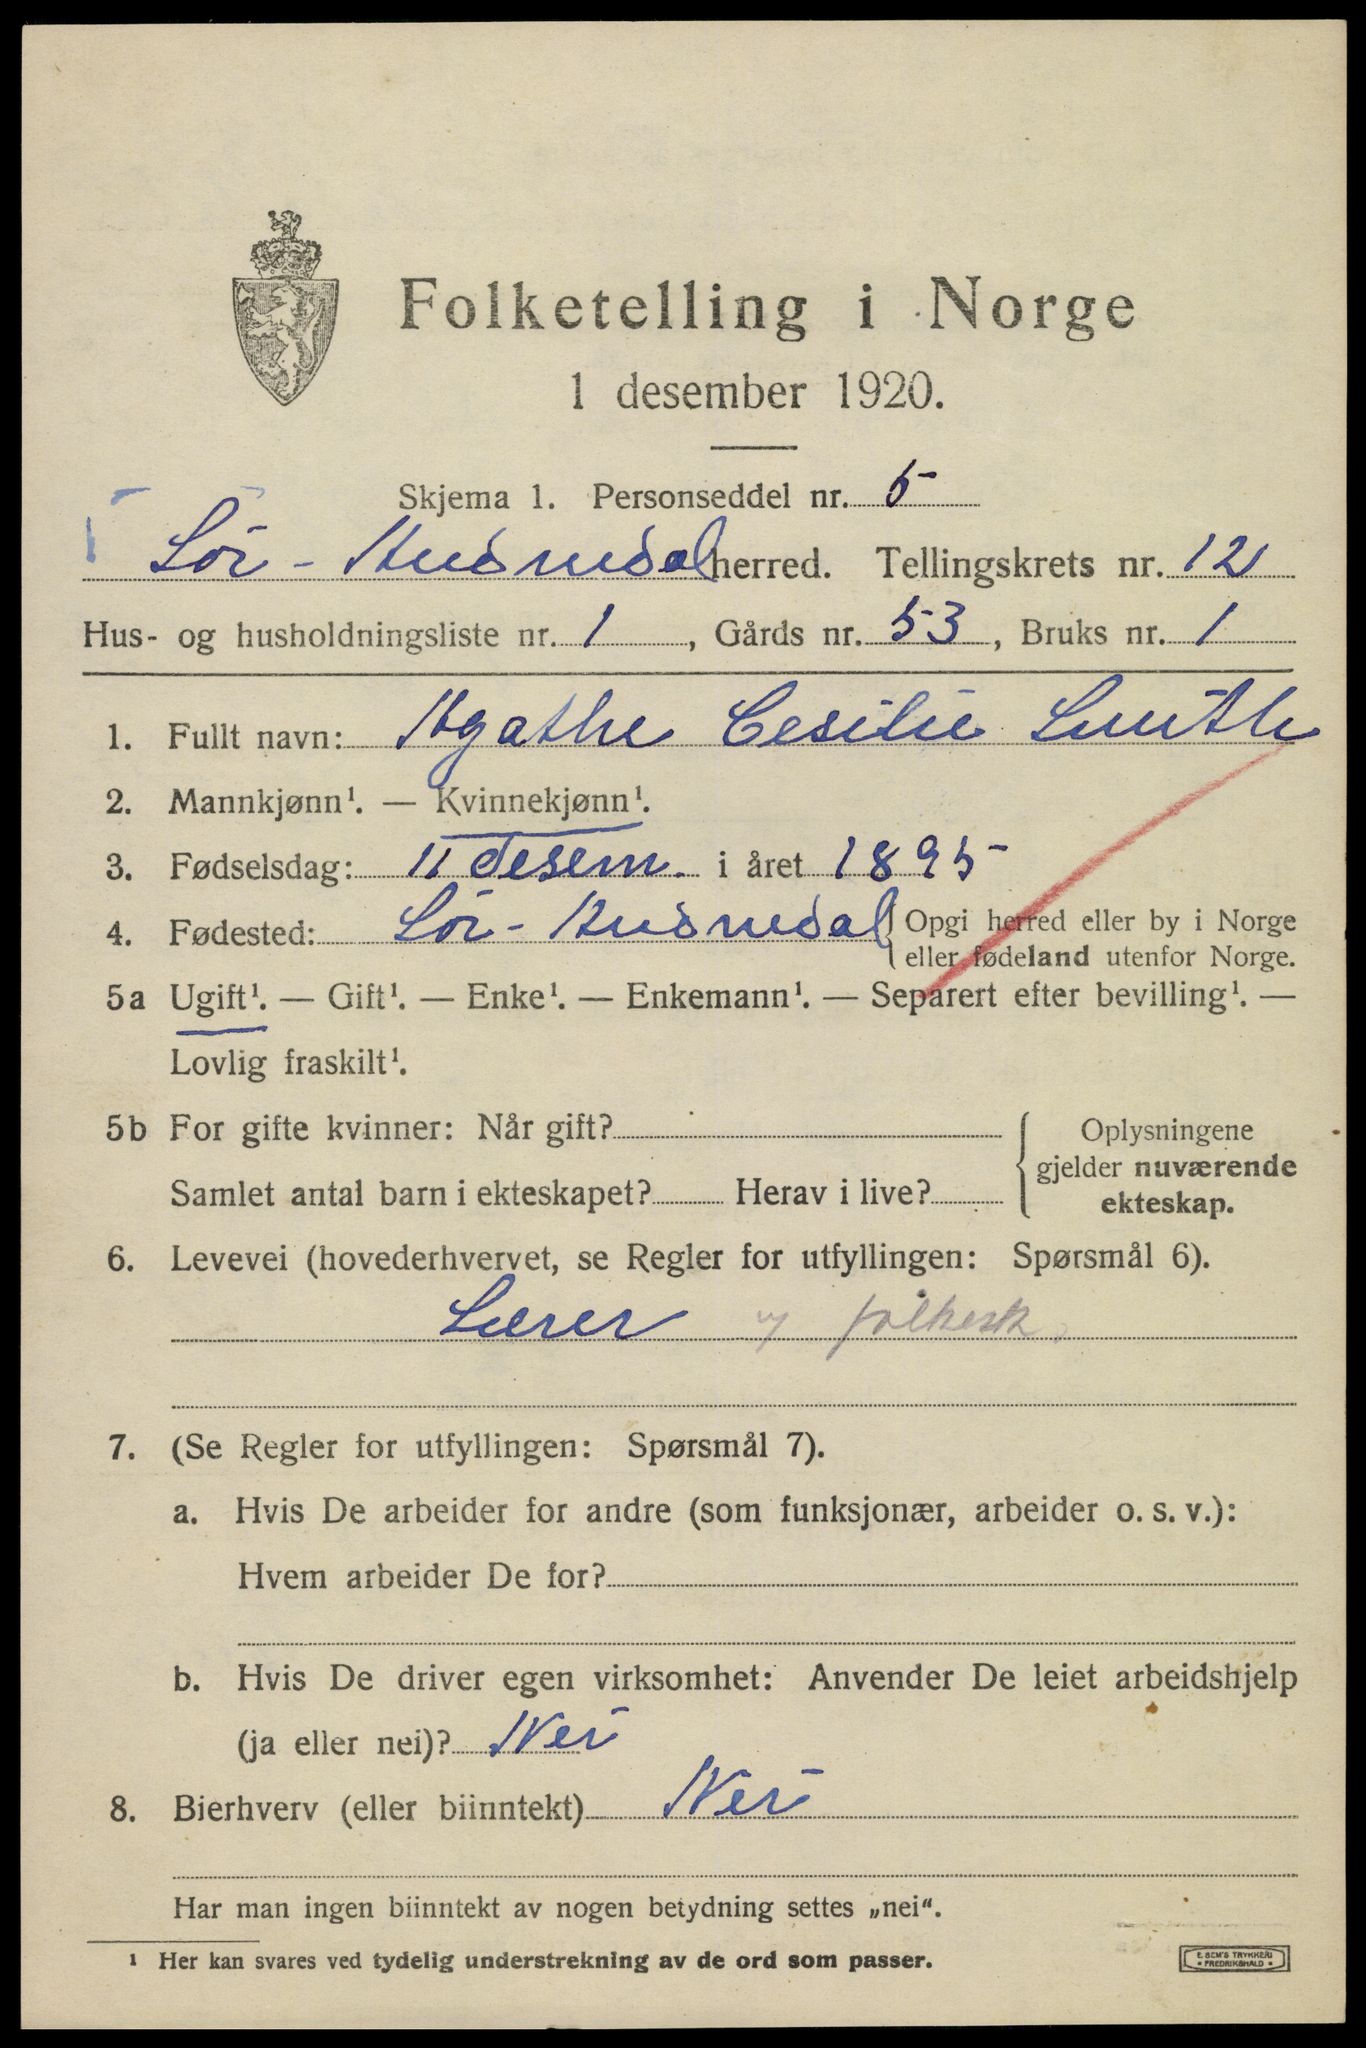 Folketelling i Norge
1 desember 1920.
Skjema 1. Personseddel nr. 5
Sör-Audnedal herred. Tellingskrets nr. 12
Hus- og husholdningsliste nr. 1, Gårds nr. 53, Bruks nr. 1
1. Fullt navn: Agathe Cesilie Smith
2. Mannkjønn¹. — Kvinnekjønn¹.
3. Fødselsdag: 11 desem. i året 1895
4. Fødested: Sör-Audnedal { Opgi herred eller by i Norge
eller fødeland utenfor Norge.
5a Ugift¹. — Gift¹. — Enke¹. — Enkemann¹. — Separert efter bevilling¹. —
Lovlig fraskilt¹.
5b For gifte kvinner: Når gift?
Samlet antal barn i ekteskapet? Herav i live?
{ Oplysningene
gjelder nuværende
ekteskap.
6. Levevei (hovederhvervet, se Regler for utfyllingen: Spørsmål 6).
Lærer v/ folkesk.
7. (Se Regler for utfyllingen: Spørsmål 7).
a. Hvis De arbeider for andre (som funksjonær, arbeider o. s. v.):
Hvem arbeider De for?
b. Hvis De driver egen virksomhet: Anvender De leiet arbeidshjelp
(ja eller nei)? Nei
8. Bierhverv (eller biinntekt) Nei
Har man ingen biinntekt av nogen betydning settes „nei“.
¹ Her kan svares ved tydelig understrekning av de ord som passer.
E. SEM'S TRYKKERI
FREDRIKSHALD